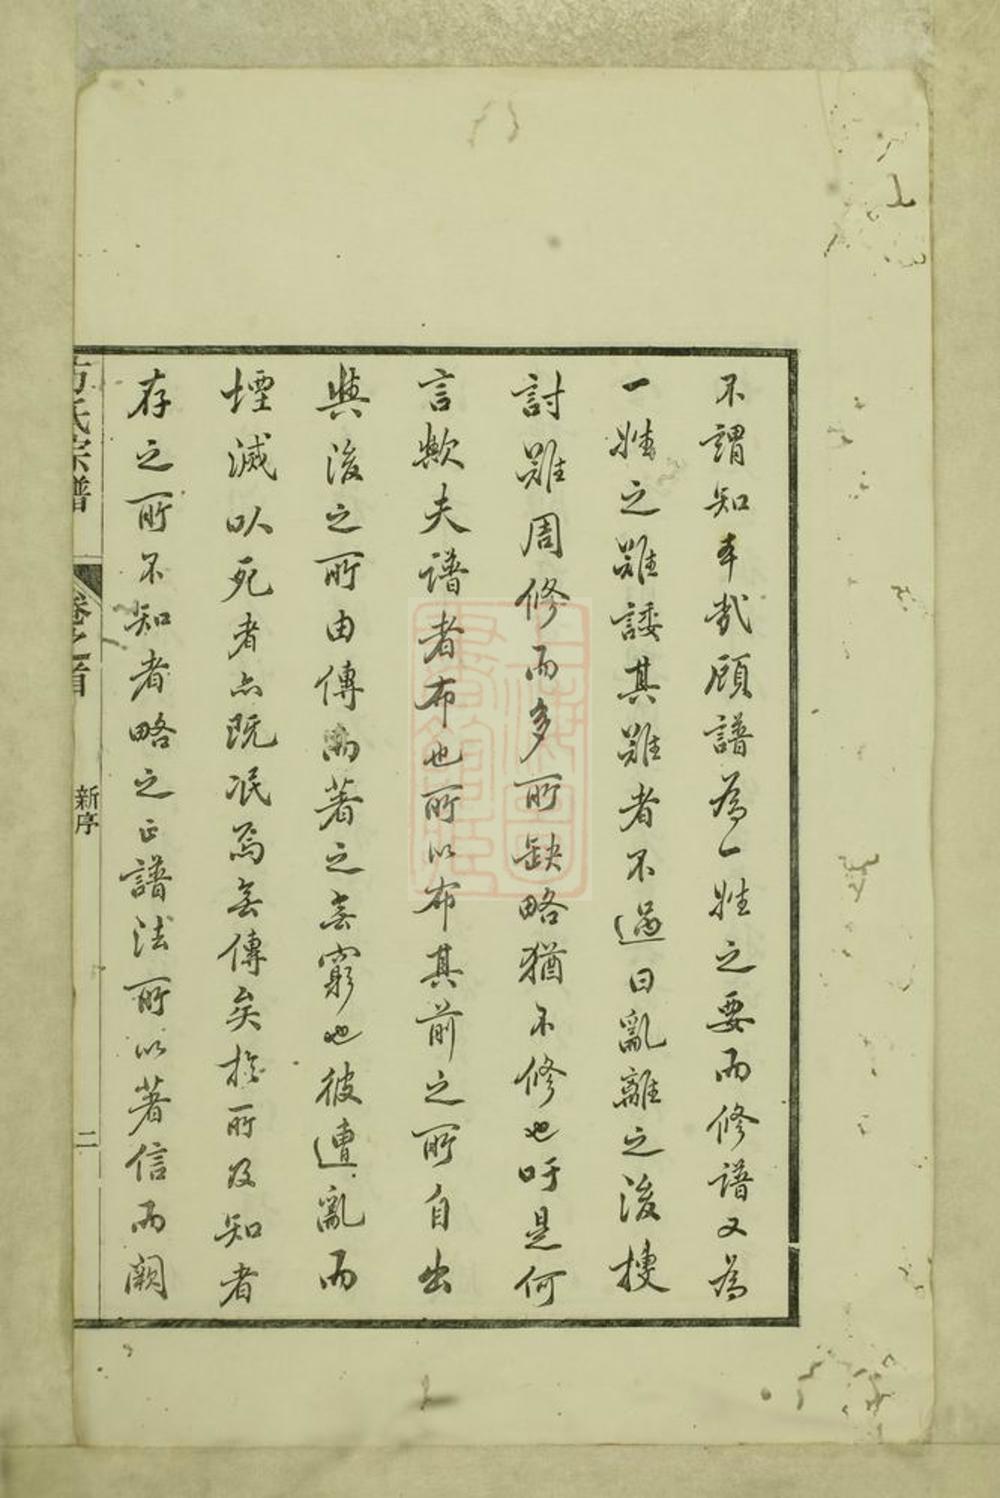 不謂知本哉顧譜為一姓之要而修譜又為
一姓之難諉其難者不過曰亂離之後搜
討難周修而多所缺略猶不修也吁是何
言歟夫譜者布也所以布其前之所自出
與後之所由傳而著之無窮也彼遭亂而
堙滅以死者亦既泯焉無傳矣於所及知者
存之所不知者略之正譜法所以著信而闕
方氏宗譜 卷之首 新序 二
上海圖書館藏